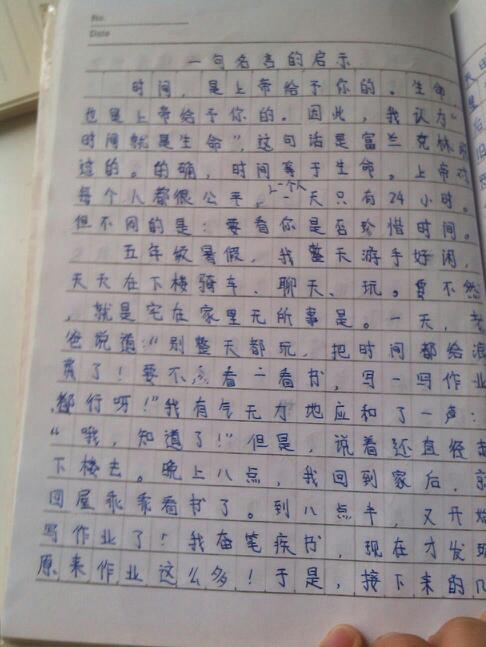 No.
Date
一句名言的启示
时间,是上帝给予你的。生命,
也是上帝给予你的。因此,我认为“
时间就是生命”,这句话是富兰克林
这的。的确,时间等于生命。上帝对
每个人都很公平,一天只有24小时。
但不同的是:要看你是否珍惜时间。
五年级暑假,我整天游手好闲,
天天在下楼骑车、聊天、玩。要不然
,就是宅在家里无所事是。一天,老
爸说道:“别整天都玩,把时间都给浪
费了!要不,看一看书,写一写作业
都行呀!”我有气无力地应和了一声:
“哦,知道了!”但是,说着还直径
下楼去。晚上八点,我回到家后,
回屋乖乖看书了。到八点半,又开始
写作业了!我奋笔疾书,现在才发现
原来作业这么多!于是,接下来的几